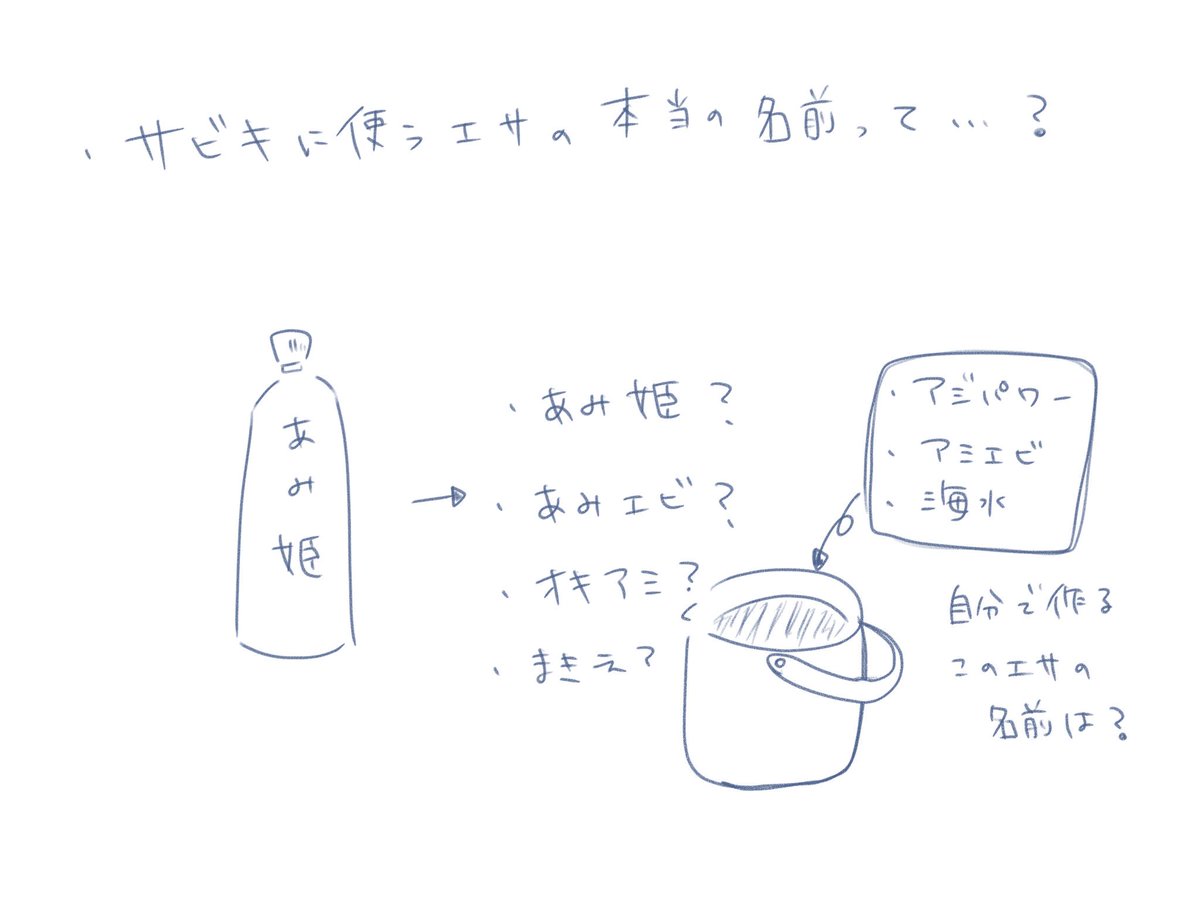 ・サビキに使うエサの本当の名前って…?
あみ姫
・あみ姫?
・あみエビ?
・オキアミ?
・まきえ?
・アジパワー
・アミエビ
・海水
自分で作る
このエサの
名前は?